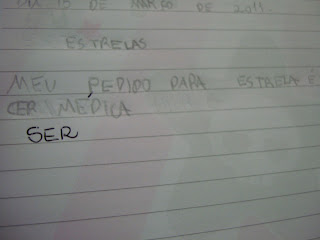 DIA 15 DE MARÇO DE 2011.
ESTRELAS
MEU PEDIDO PARA ESTRELA É
CER MÉDICA
SER